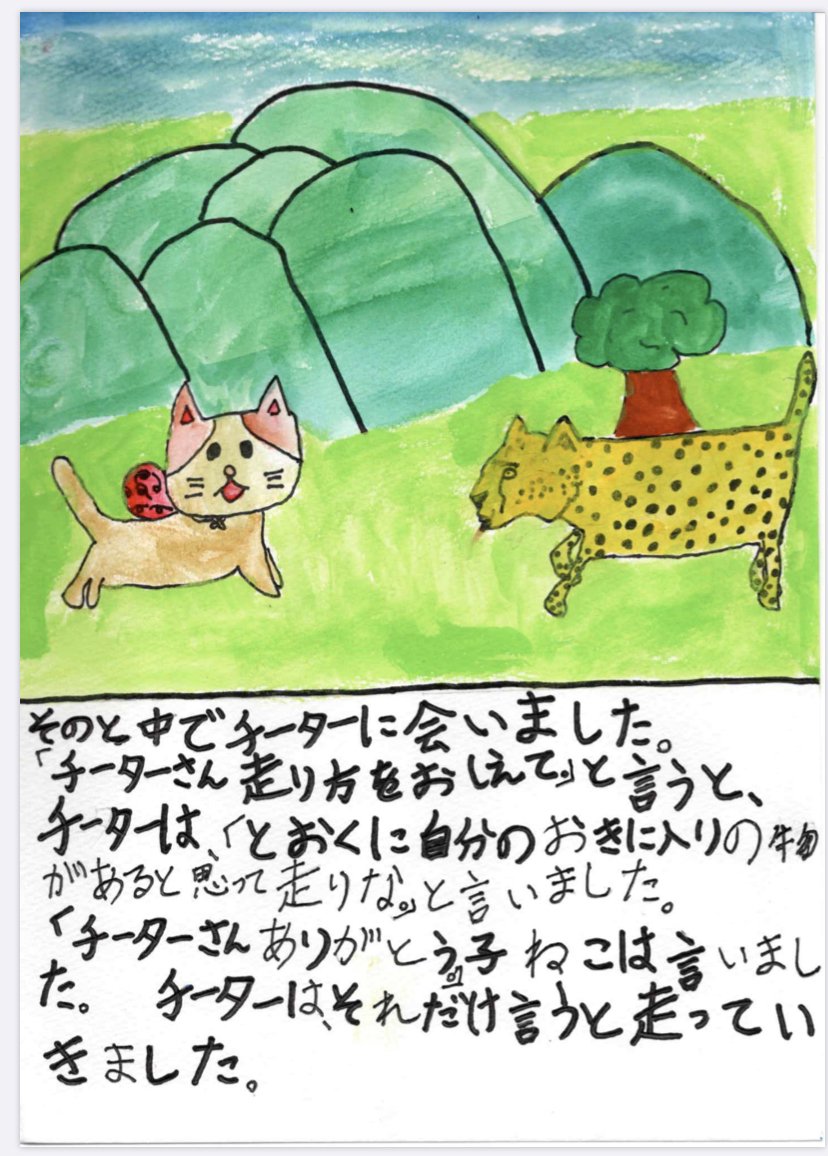 そのと中でチーターに会いました。
「チーターさん走り方をおしえて。」と言うと、
チーターは、「とおくに自分のおきに入りの物
があると思って走りな。」と言いました。
「チーターさんありがとう。」子ねこは言いまし
た。　チーターは、それだけ言うと走ってい
きました。